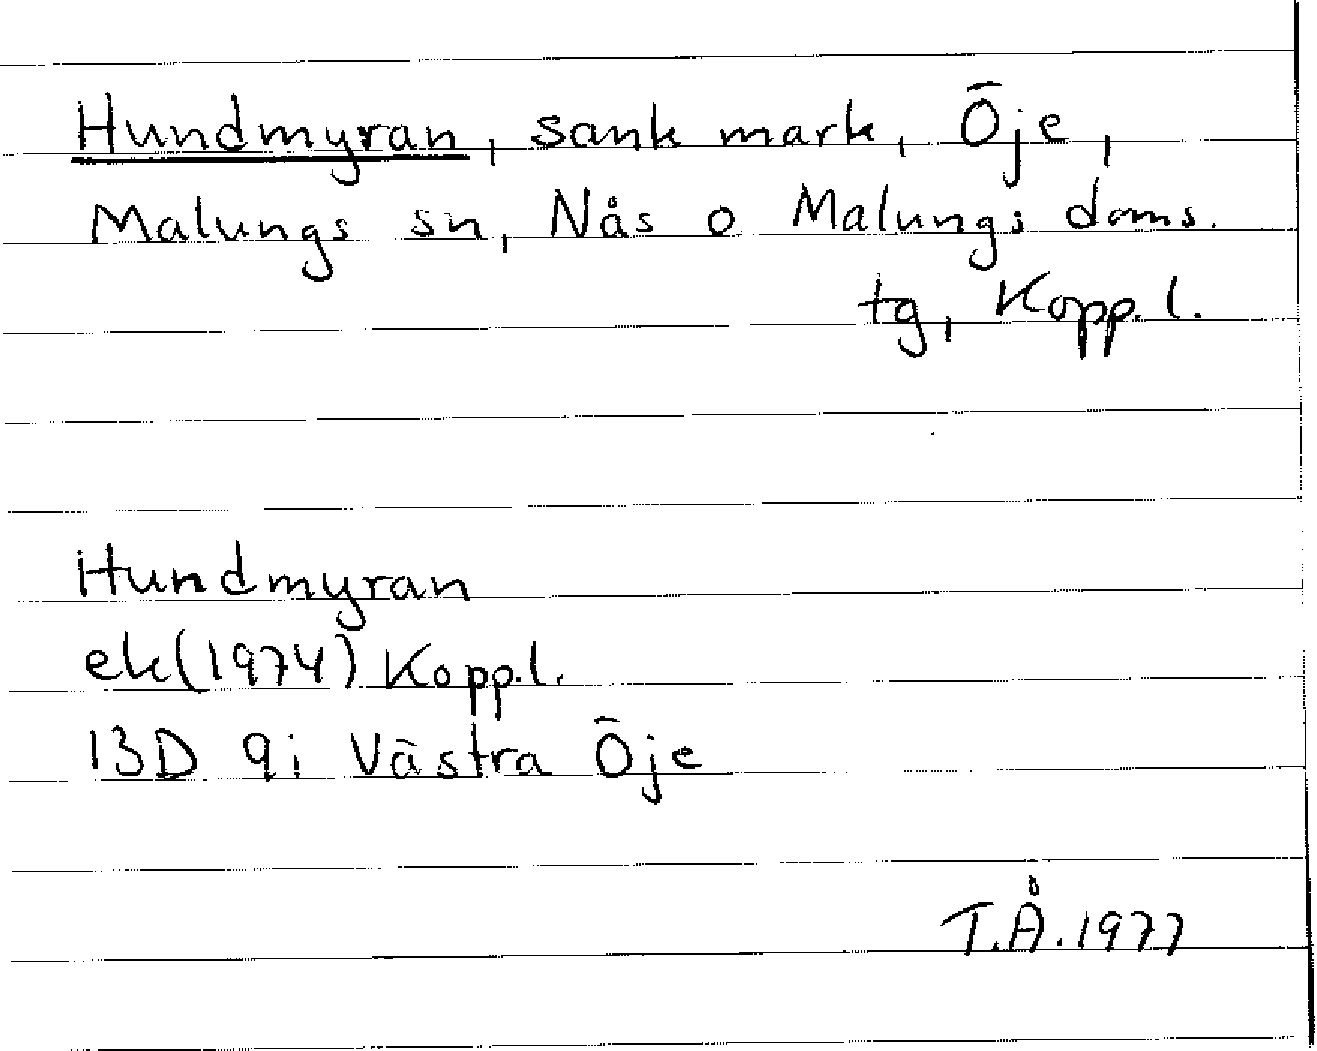 Hundmyran, sank mark, Öje,
Malungs sn, Nås o Malungs doms.
tg, Kopp. l.
Hundmyran
ek (1974) Kopp. l.
13D 9i Västra Öje
T.Å. 1977